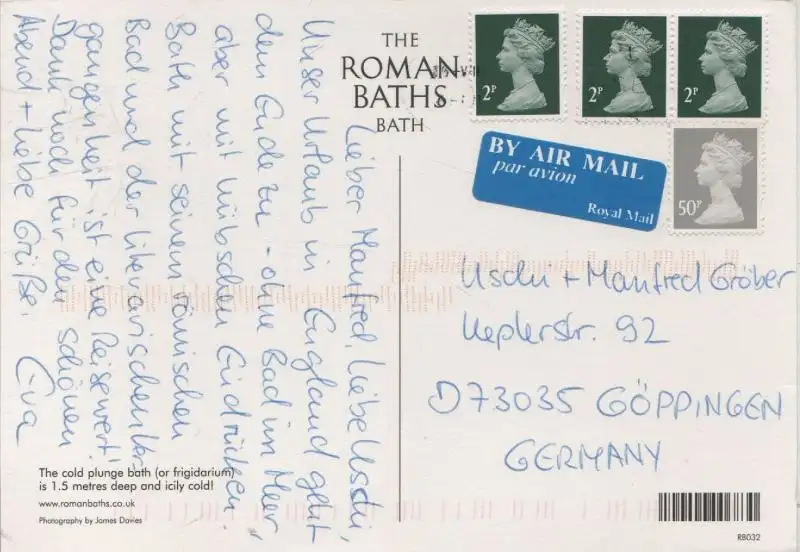 THE
ROMAN
BATHS
BATH
2P
2P
2P
50P
BY AIR MAIL
par avion
Royal Mail
Lieber Manfred, liebe Uschi,
Unser Urlaub in England geht
dem Ende zu - ohne Bad im Meer
aber mit hübschen Eindrücken.
Bath mit seinem römischen
Bad und der literarischen Ver
gangenheit ist eine Reise wert!
Dank noch für den schönen
Abend + liebe Grüße.
Eva
Uschi + Manfred Gröber
Keplerstr. 92
D73035 GÖPPINGEN
GERMANY
The cold plunge bath (or frigidarium)
is 1.5 metres deep and icily cold!
www.romanbaths.co.uk
Photography by James Davies
RB032